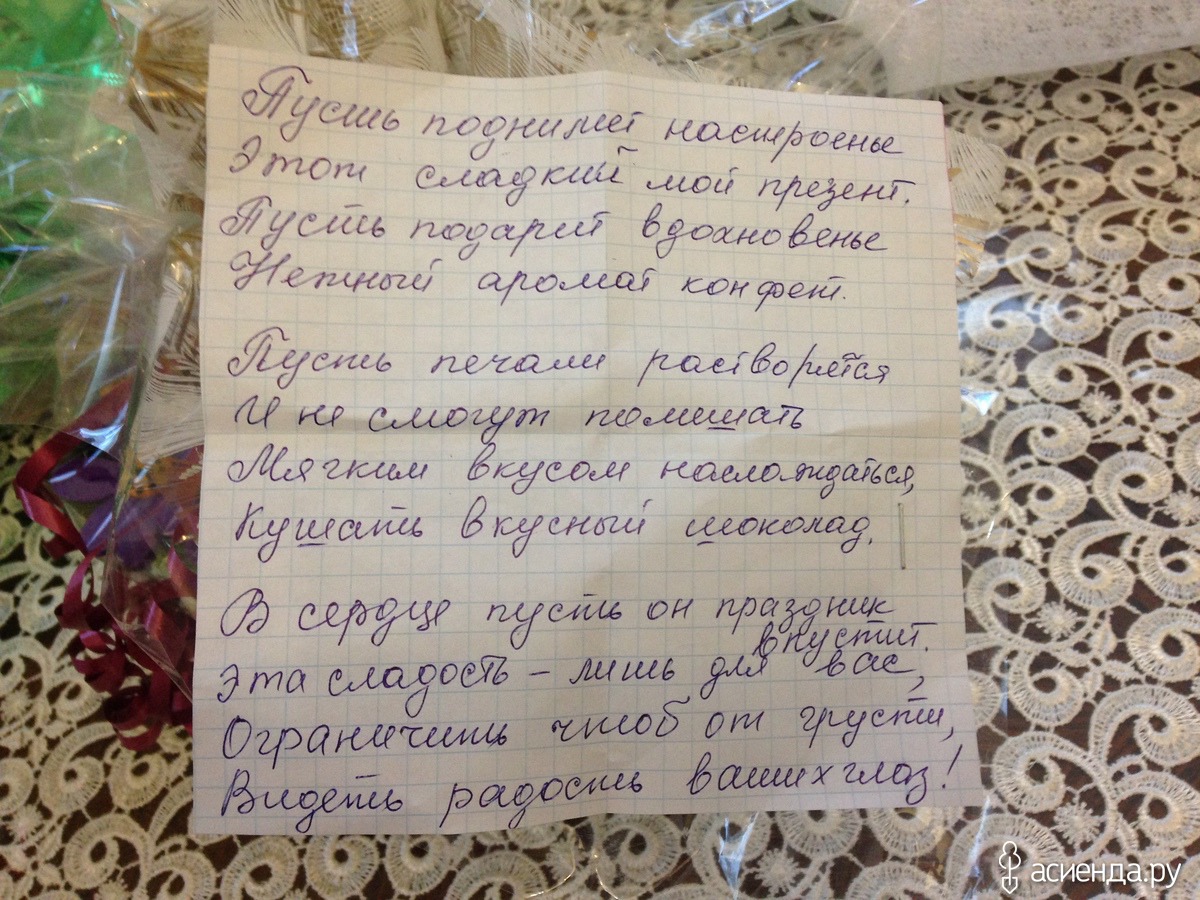 Пусть поднимет настроенье
Этот сладкий мой презент.
Пусть подарит вдохновенье
Нежный аромат конфет.
Пусть печали растворятся
И не смогут помешать
Мягким вкусом наслаждаться,
Кушать вкусный шоколад.
В сердце пусть он праздник
впустит.
Эта сладость – лишь для вас,
Ограничить чтоб от грусти,
Видеть радость ваших глаз!
асиенда.ру